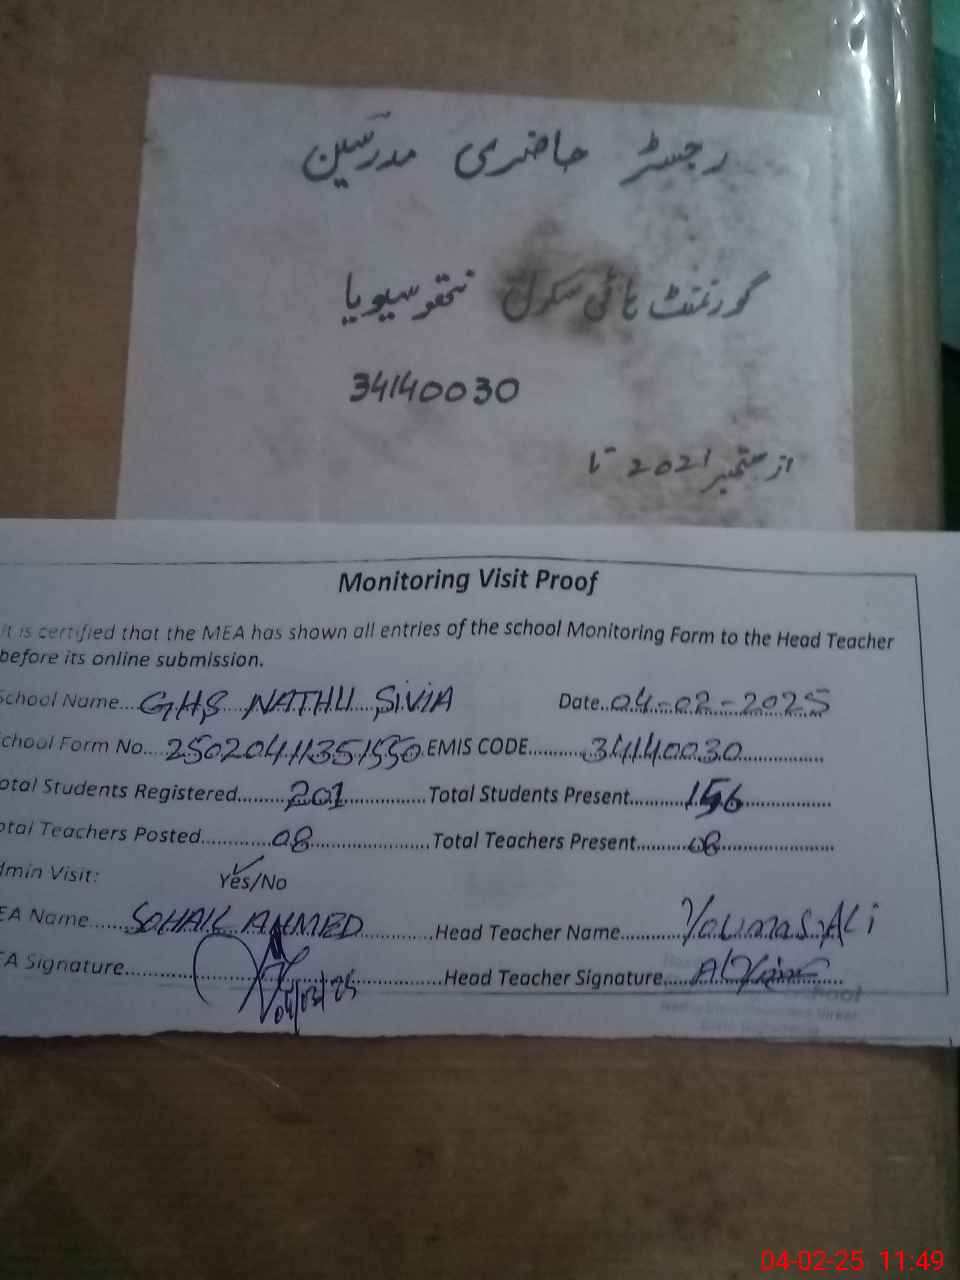 رجسٹر حاضری مدرسین
گورنمنٹ ہائی سکول نتھو سیویا
34140030
از ستمبر 2021 تا
Monitoring Visit Proof
it is certified that the MEA has shown all entries of the school Monitoring Form to the Head Teacher
before its online submission.
School Name....GHS NATHU SIVIA Date..04-02-2025
School Form No....25020411351550 EMIS CODE..........34140030
otal Students Registered.........201................Total Students Present...........156
otal Teachers Posted.............08......................Total Teachers Present..........08
dmin Visit: Yes/No
EA Name......SOHAIL AHMED.............Head Teacher Name...........Younas Ali
EA Signature..............................Head Teacher Signature.....
04/02/25
04-02-25 11:49